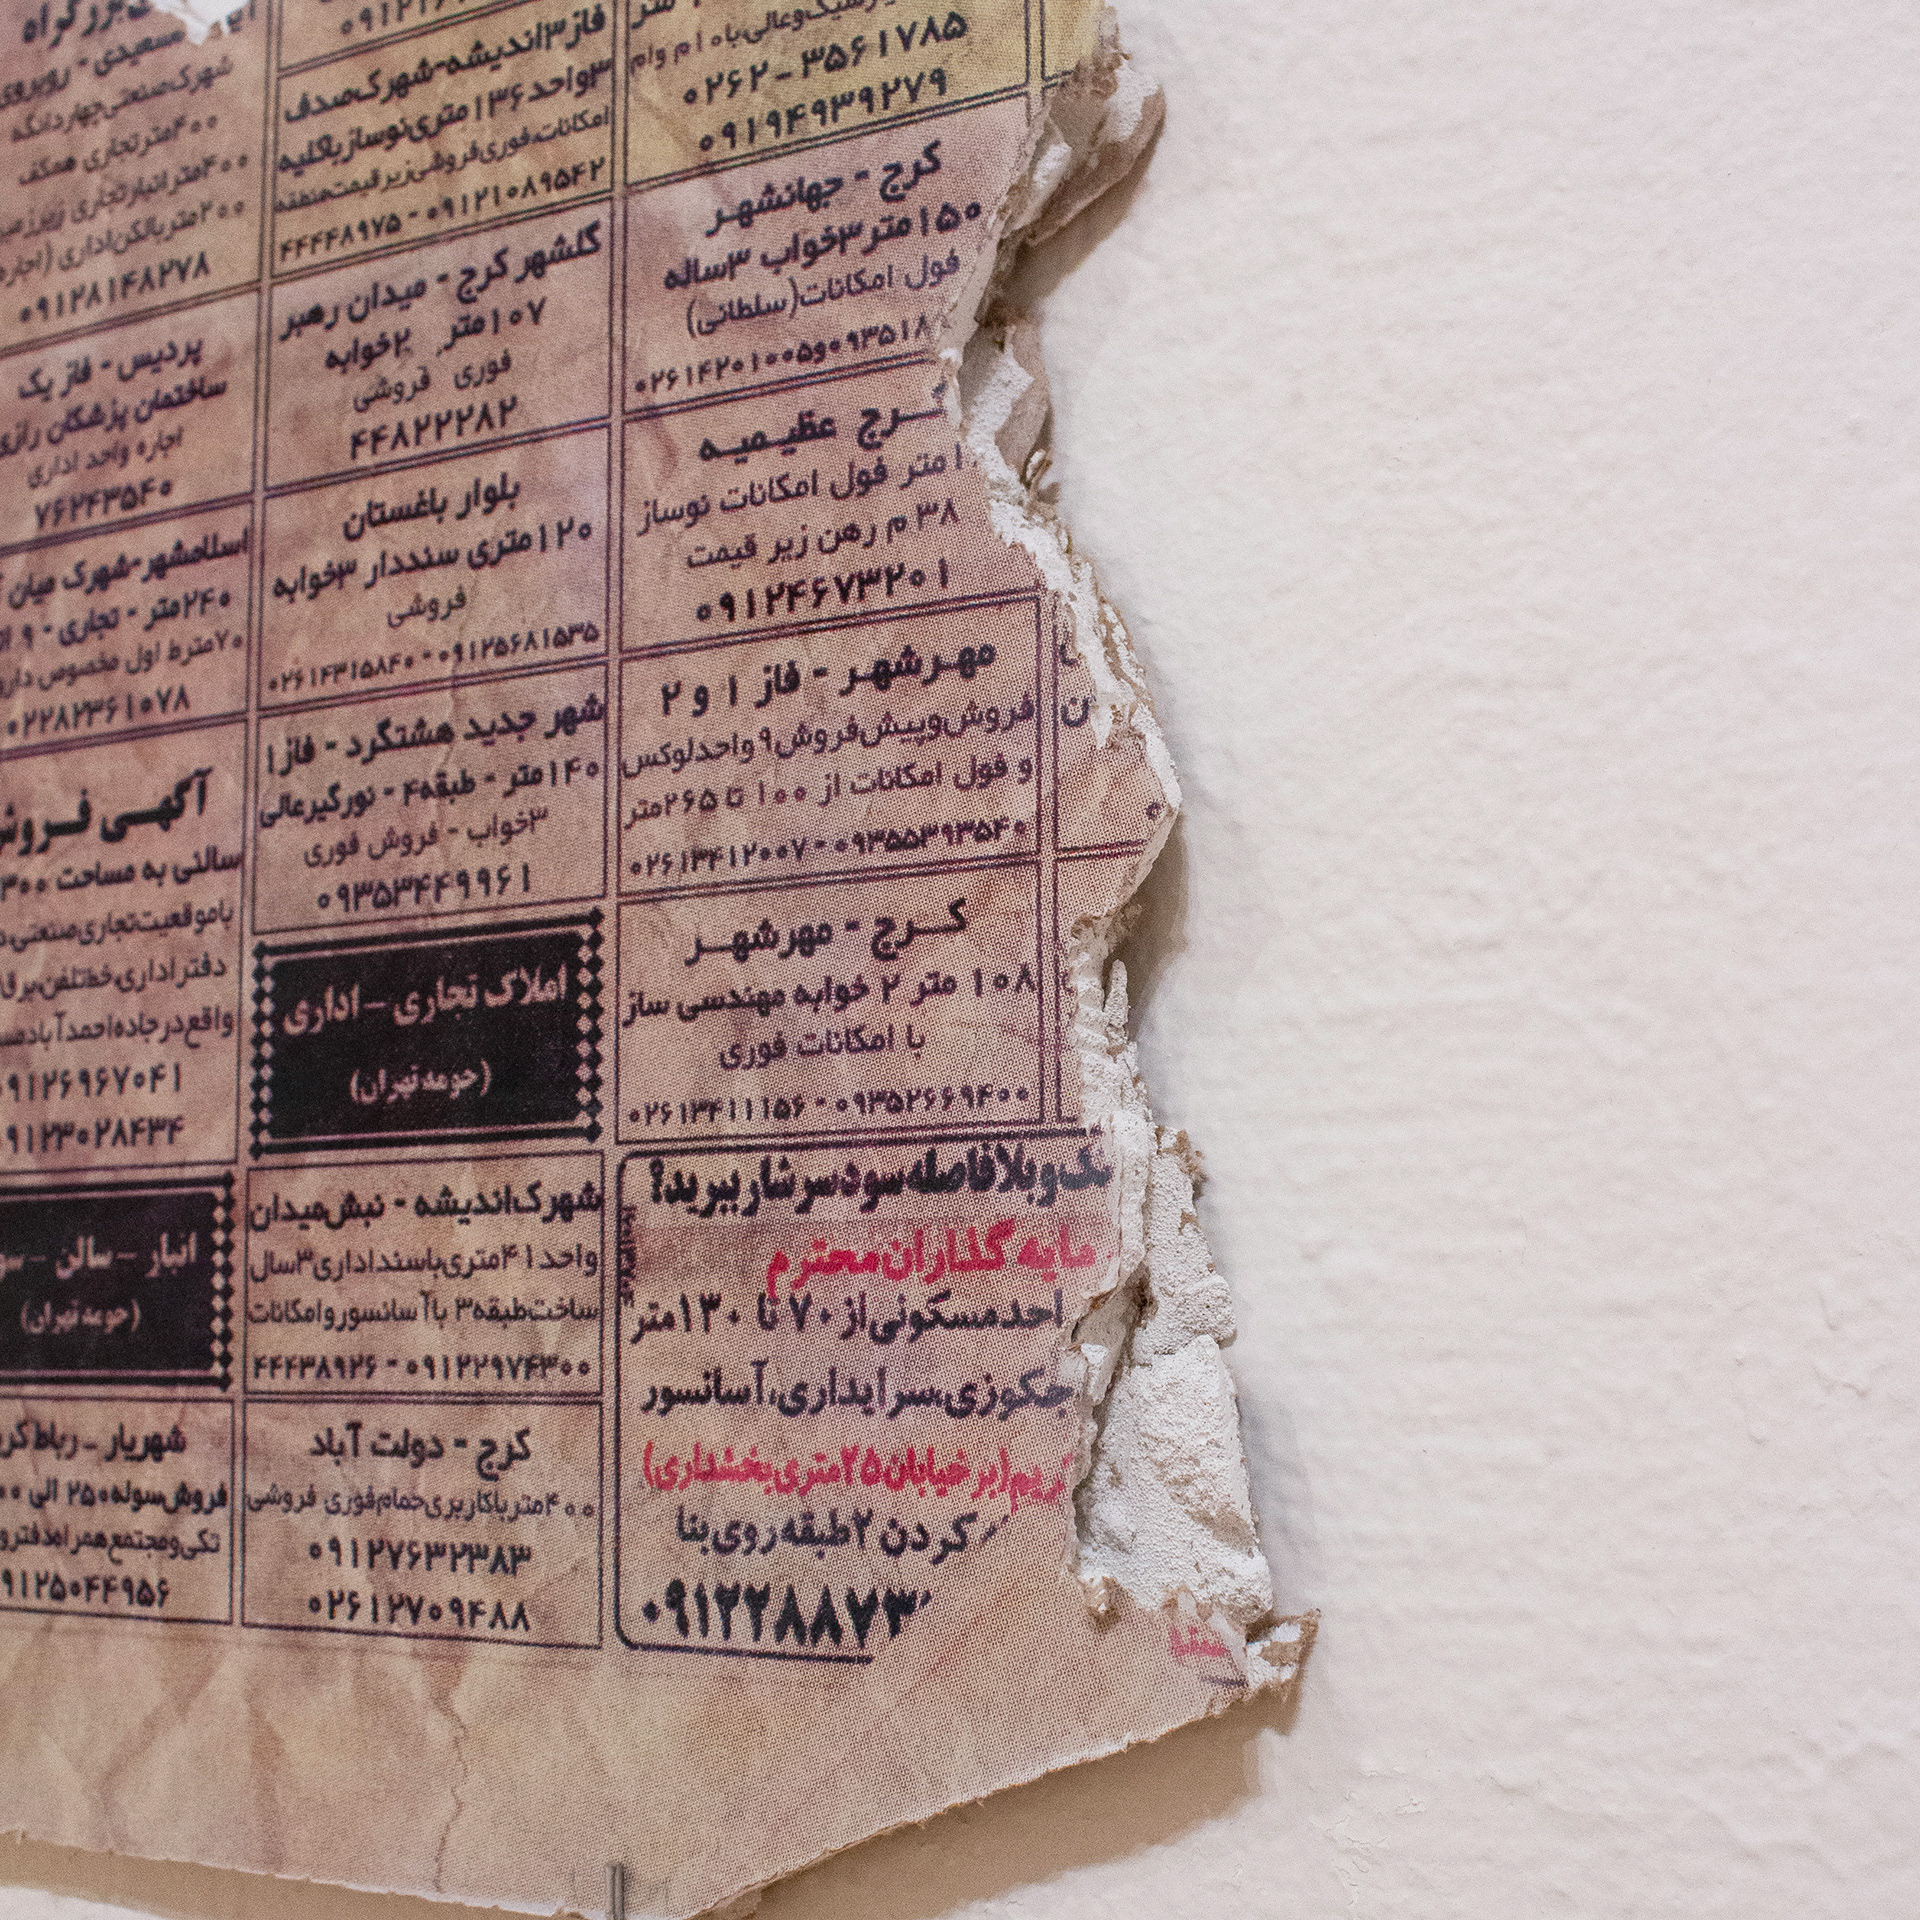 ۰۲۶۲-۳۵۶۱۷۸۵
۰۹۱۹۴۹۳۹۲۷۹
کرج - جهانشهر
۱۵۰متر۳خواب ۳ساله
فول امکانات(سلطانی)
۰۲۶۱۴۲۰۱۰۰۵و۰۹۳۵۱۸
کرج عظیمیه
متر فول امکانات نوساز
۳۸ م رهن زیر قیمت
۰۹۱۲۴۶۷۳۲۰۱
مهرشهر - فاز ۱ و ۲
فروش‌وپیش‌فروش۹ واحدلوکس
و فول امکانات از ۱۰۰ تا ۲۶۵متر
۰۲۶۱۳۴۱۲۰۰۷-۰۹۳۵۵۳۹۳۵۴۰
کرج - مهرشهر
۱۰۸ متر ۲ خوابه مهندسی ساز
با امکانات فوری
۰۲۶۱۳۴۱۱۱۵۶-۰۹۳۵۲۶۶۹۴۰۰
وبلافاصله سودسرشارببرید؟
مایه گذاران محترم
احدمسکونی از ۷۰ تا ۱۳۰متر
جکوزی،سرایداری،آسانسور
(بر خیابان۲۵متری‌بخشداری)
کردن ۲طبقه روی بنا
۰۹۱۲۲۸۸۷۳
فاز۳اندیشه-شهرک‌صدف
۳واحد۱۳۶متری‌نوسازباکلیه
امکانات‌فوری‌فروشی‌زیرقیمت‌منطقه
۴۴۴۴۸۹۷۵-۰۹۱۲۱۰۸۹۵۴۲
گلشهر کرج - میدان رهبر
۱۰۷متر ۲خوابه
فوری فروشی
۴۴۸۲۲۲۸۲
بلوار باغستان
۱۲۰متری سنددار ۳خوابه
فروشی
۰۲۶۱۴۳۱۵۸۴۰-۰۹۱۲۵۶۸۱۵۳۵
شهر جدید هشتگرد - فاز۱
۱۴۰متر - طبقه۴ - نورگیرعالی
۳خواب - فروش فوری
۰۹۳۵۳۴۴۹۹۶۱
املاک تجاری - اداری
(حومه تهران)
شهرک‌اندیشه - نبش‌میدان
واحد۴۱متری‌باسنداداری۳سال
ساخت‌طبقه۳ باآسانسوروامکانات
۴۴۴۳۸۹۲۶-۰۹۱۲۲۹۷۴۳۰۰
کرج - دولت آباد
۴۰۰متر‌باکاربری‌حمام‌فوری فروشی
۰۹۱۲۷۶۳۲۳۸۳
۰۲۶۱۲۷۰۹۴۸۸
سعیدی - روبروی
شهرک‌صنعتی‌چهاردانگه
۴۰۰متر تجاری همکف
۴۰۰متر‌انبار‌تجاری زیرزمین
۲۰۰متر‌بالکن‌اداری (اجاره
۰۹۱۲۸۱۴۸۲۷۸
پردیس - فاز یک
ساختمان پزشکان رازی
اجاره واحد اداری
۷۶۲۴۳۵۴۰
اسلامشهر-شهرک میان
۲۴۰متر - تجاری - ۹
۷۰مترط اول مخصوص دارو
۰۲۲۸۲۳۶۱۰۷۸
آگهی فروش
سالنی به مساحت ۳۰۰
باموقعیت‌تجاری‌صنعتی
دفتراداری‌خط‌تلفن‌برق
واقع‌در‌جاده‌احمدآباد
۹۱۲۶۹۶۷۰۴۱
۹۱۲۳۰۲۸۴۳۴
انبار - سالن - سو
(حومه تهران)
شهریار - رباط‌کر
فروش‌سوله۲۵۰ الی
تکی‌ومجتمع‌همراه‌دفترو
۹۱۲۵۰۴۴۹۵۶